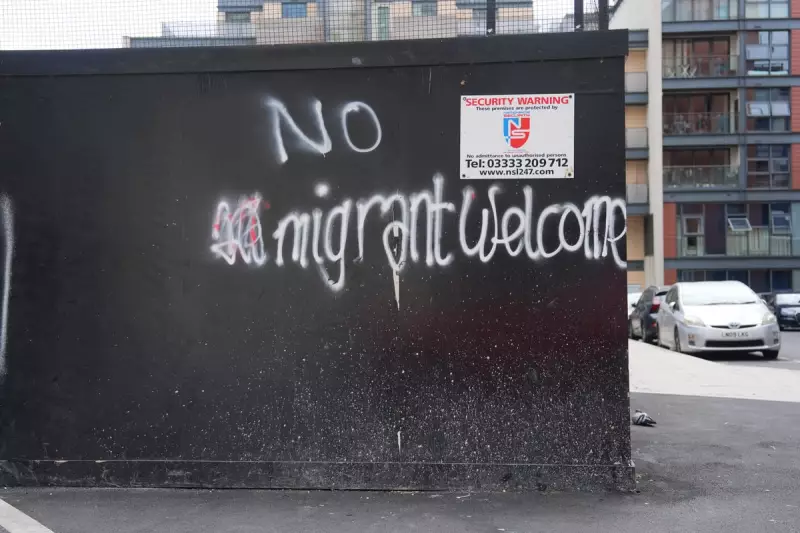 NO
SECURITY WARNING
These premises are protected by
No admittance to unauthorised persons
Tel: 03333 209 712
www.nsl247.com
migrant Welcome